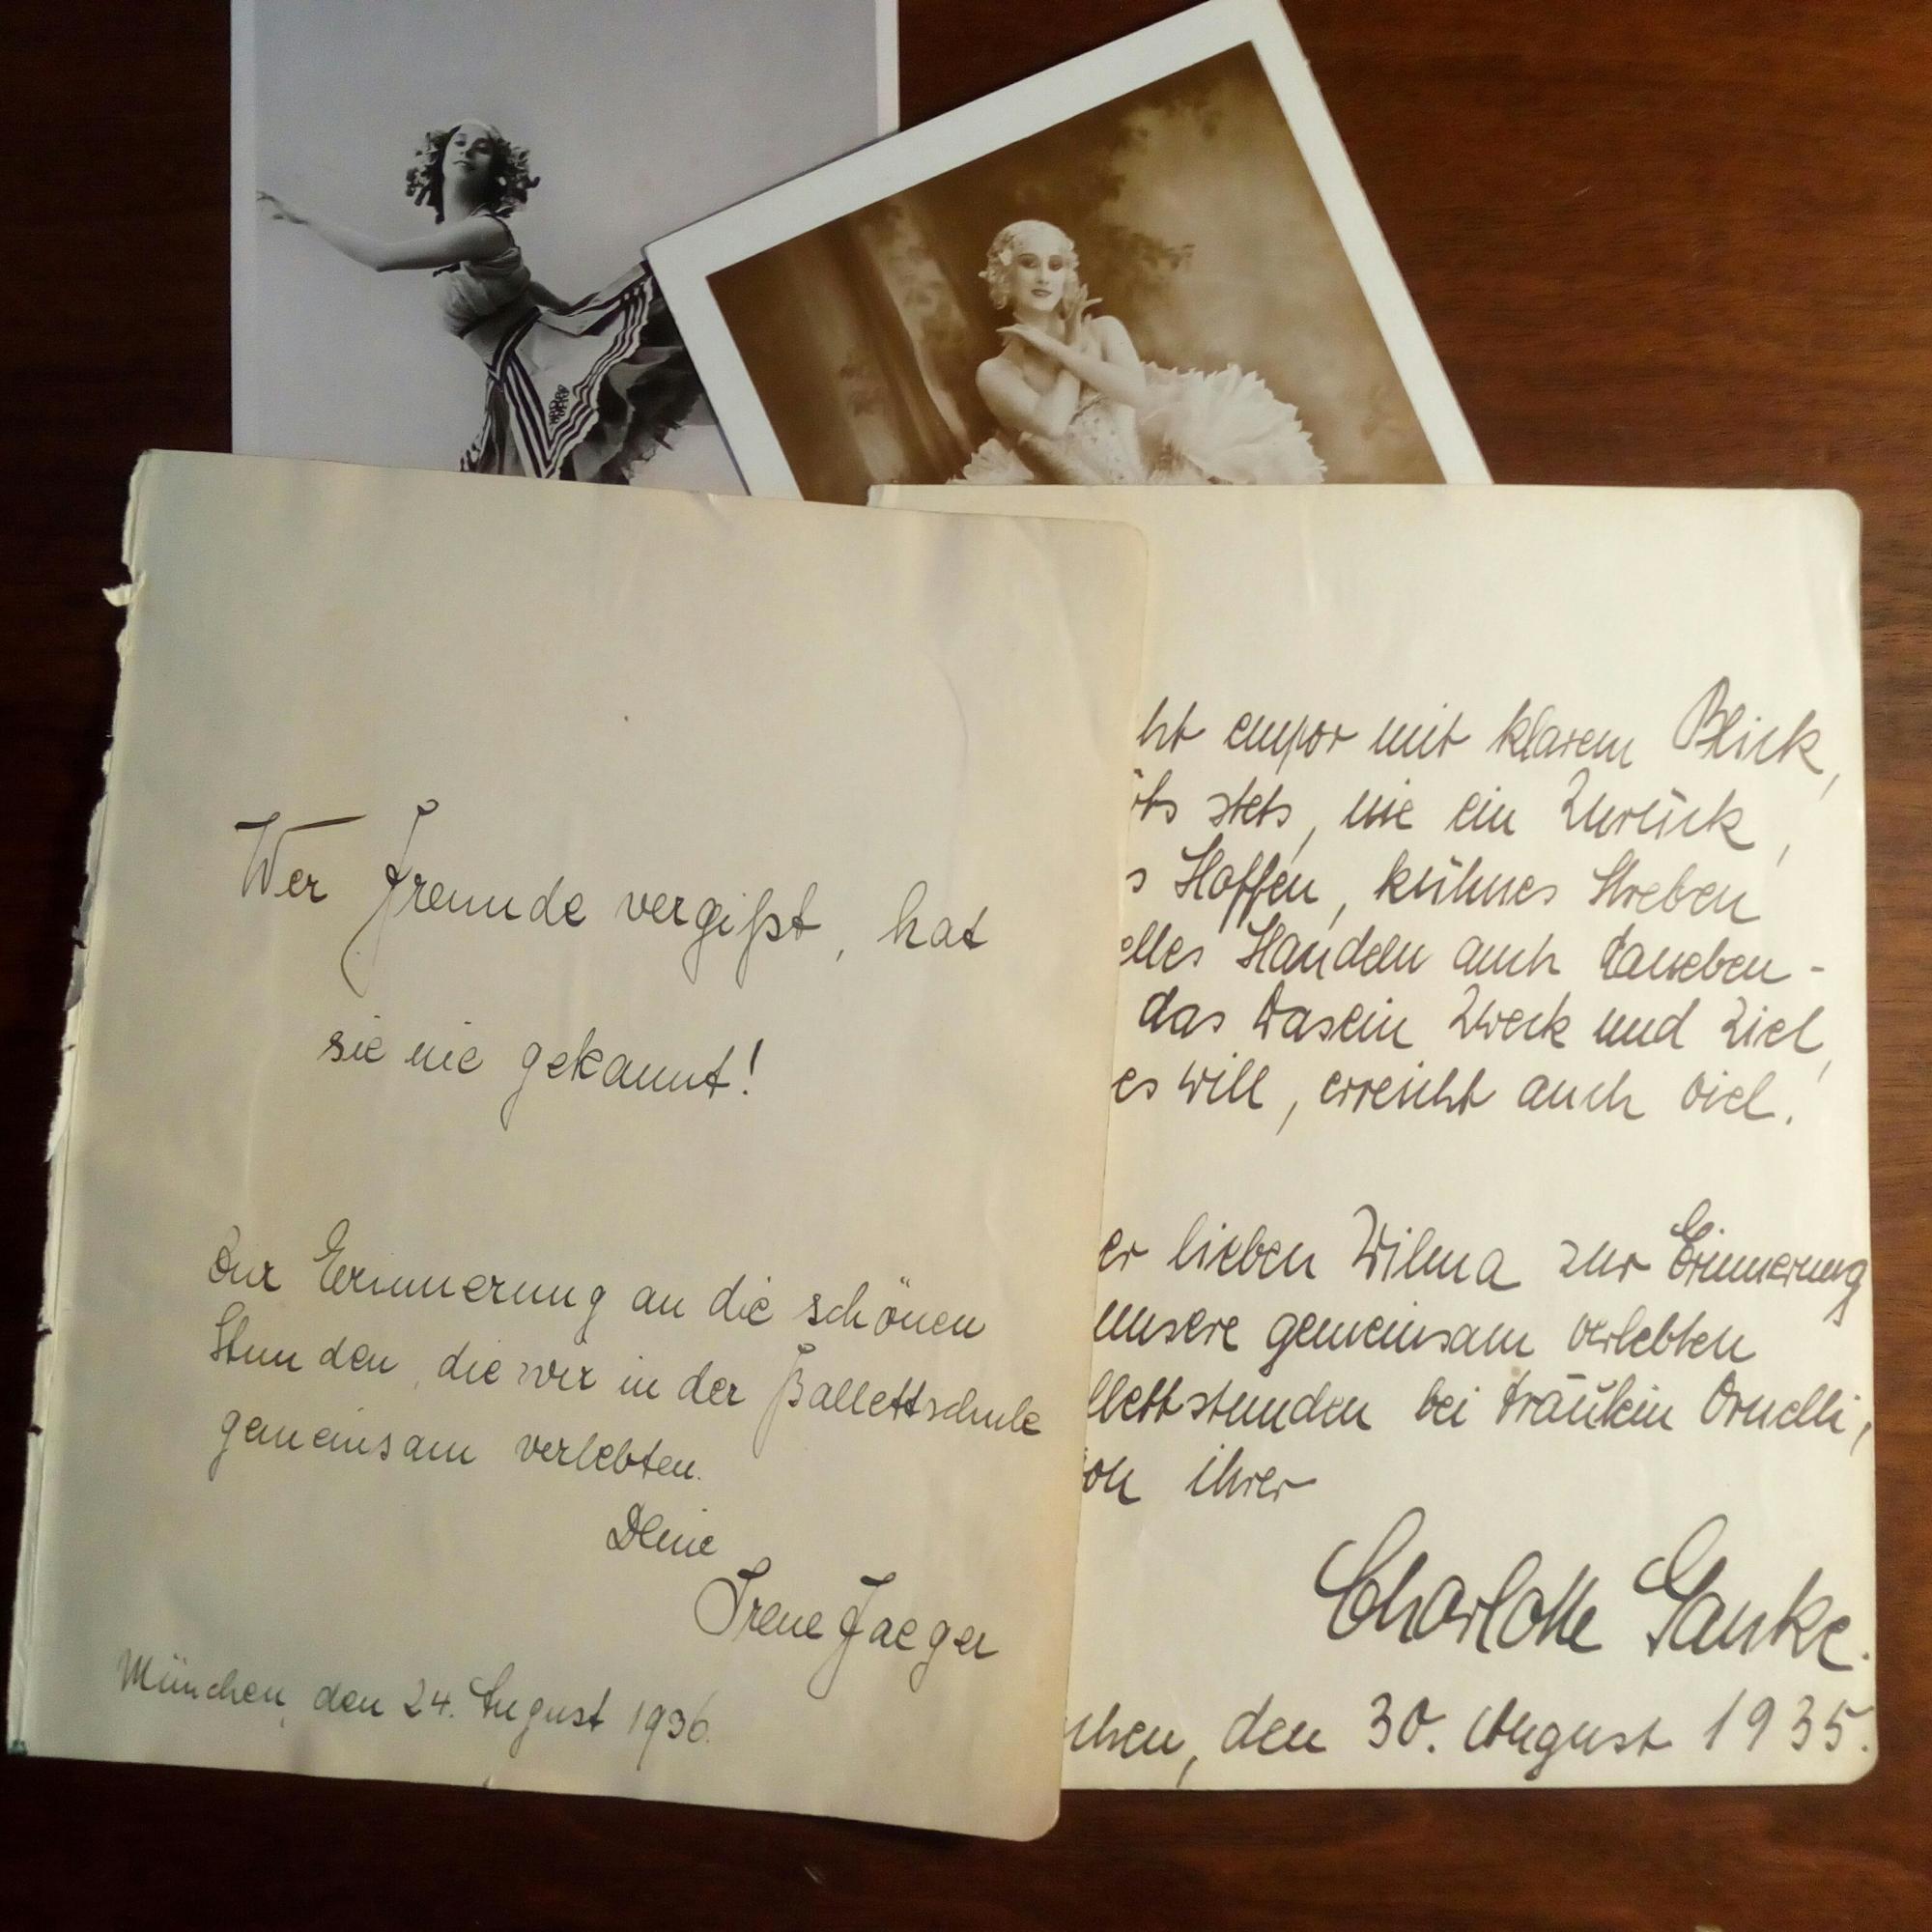 Wer Freunde vergißt, hat
sie nie gekannt!
Zur Erinnerung an die schönen
Stunden, die wir in der Ballettschule
gemeinsam verlebten.
Deine
Irene Jaeger
München, den 24. August 1936.
ht empor mit klarem Blick,
ts stets, nie ein Zurück,
s Hoffen, kühnes Streben
elles Handeln auch daneben -
das Dasein Zweck und Ziel,
es will, erreicht auch viel.
er lieben Wilma zur Erinnerung
unsere gemeinsam verlebten
llettstunden bei Fräulein Ornelli,
on ihrer
Charlotte Ganke.
chen, den 30. August 1935.